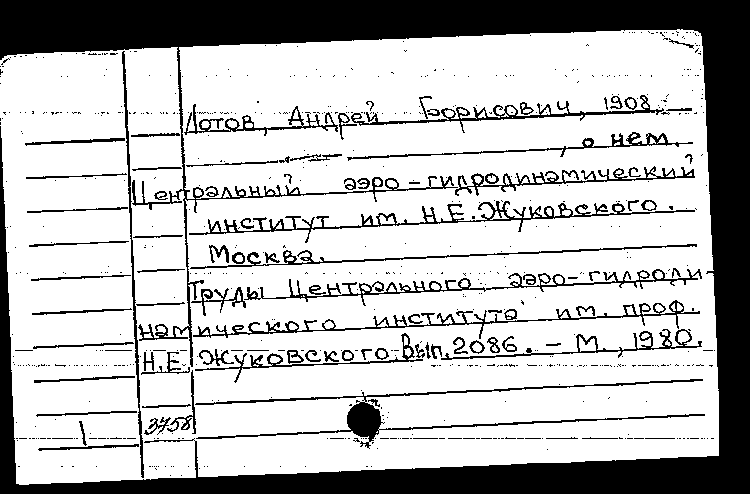 Лотов, Андрей Борисович, 1908,
—"—, о нем.
Центральный аэро-гидродинамический
институт им. Н.Е.Жуковского.
Москва.
Труды Центрального аэро-гидроди-
намического института им. проф.
Н.Е. Жуковского. Вып. 2086. - М., 1980.
1 3758